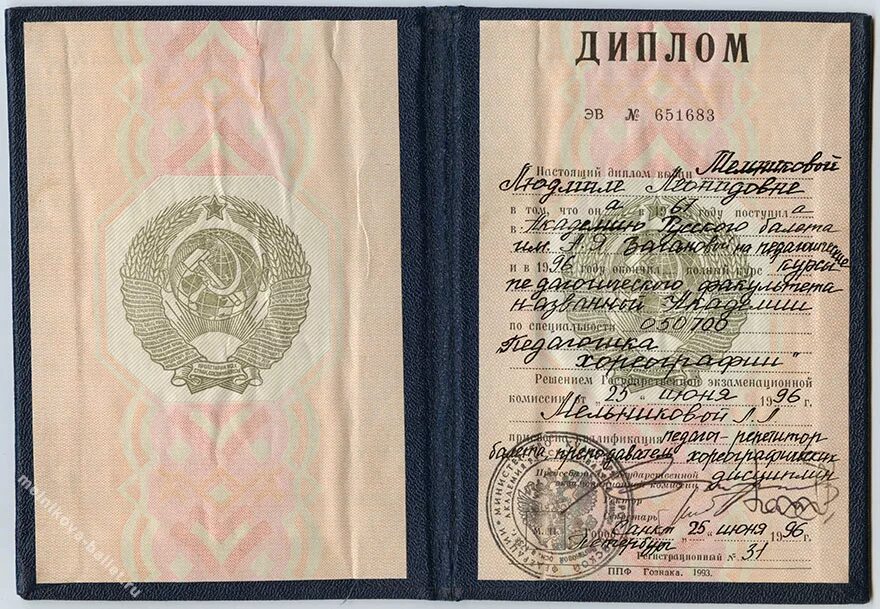 ПРОЛЕТАРИИ ВСЕХ
СТРАН, СОЕДИНЯЙТЕСЬ!
melnikova-ballet.ru
ДИПЛОМ
ЭВ № 651683
Настоящий диплом выдан Мельниковой
Людмиле Леонидовне
в том, что она в 1961 году поступила
в Академию Русского балета
им. А Я Вагановой на педагогические
и в 1996 году окончила полный курс курсы
педагогического факультета
названной Академии
по специальности 050700
"Педагогика
хореографии"
Решением Государственной экзаменационной
комиссии от "25" июня 1996 г.
Мельниковой Л.Л
присвоена квалификация педагог-репетитор
балета, преподаватель хореографических
Председатель Государственной дисциплин
экзаменационной комиссии
Ректор
Секретарь
М. П. Город Санкт 25 июня 1996 г.
Петербург
Регистрационный № 31
ППФ Гознака. 1993.